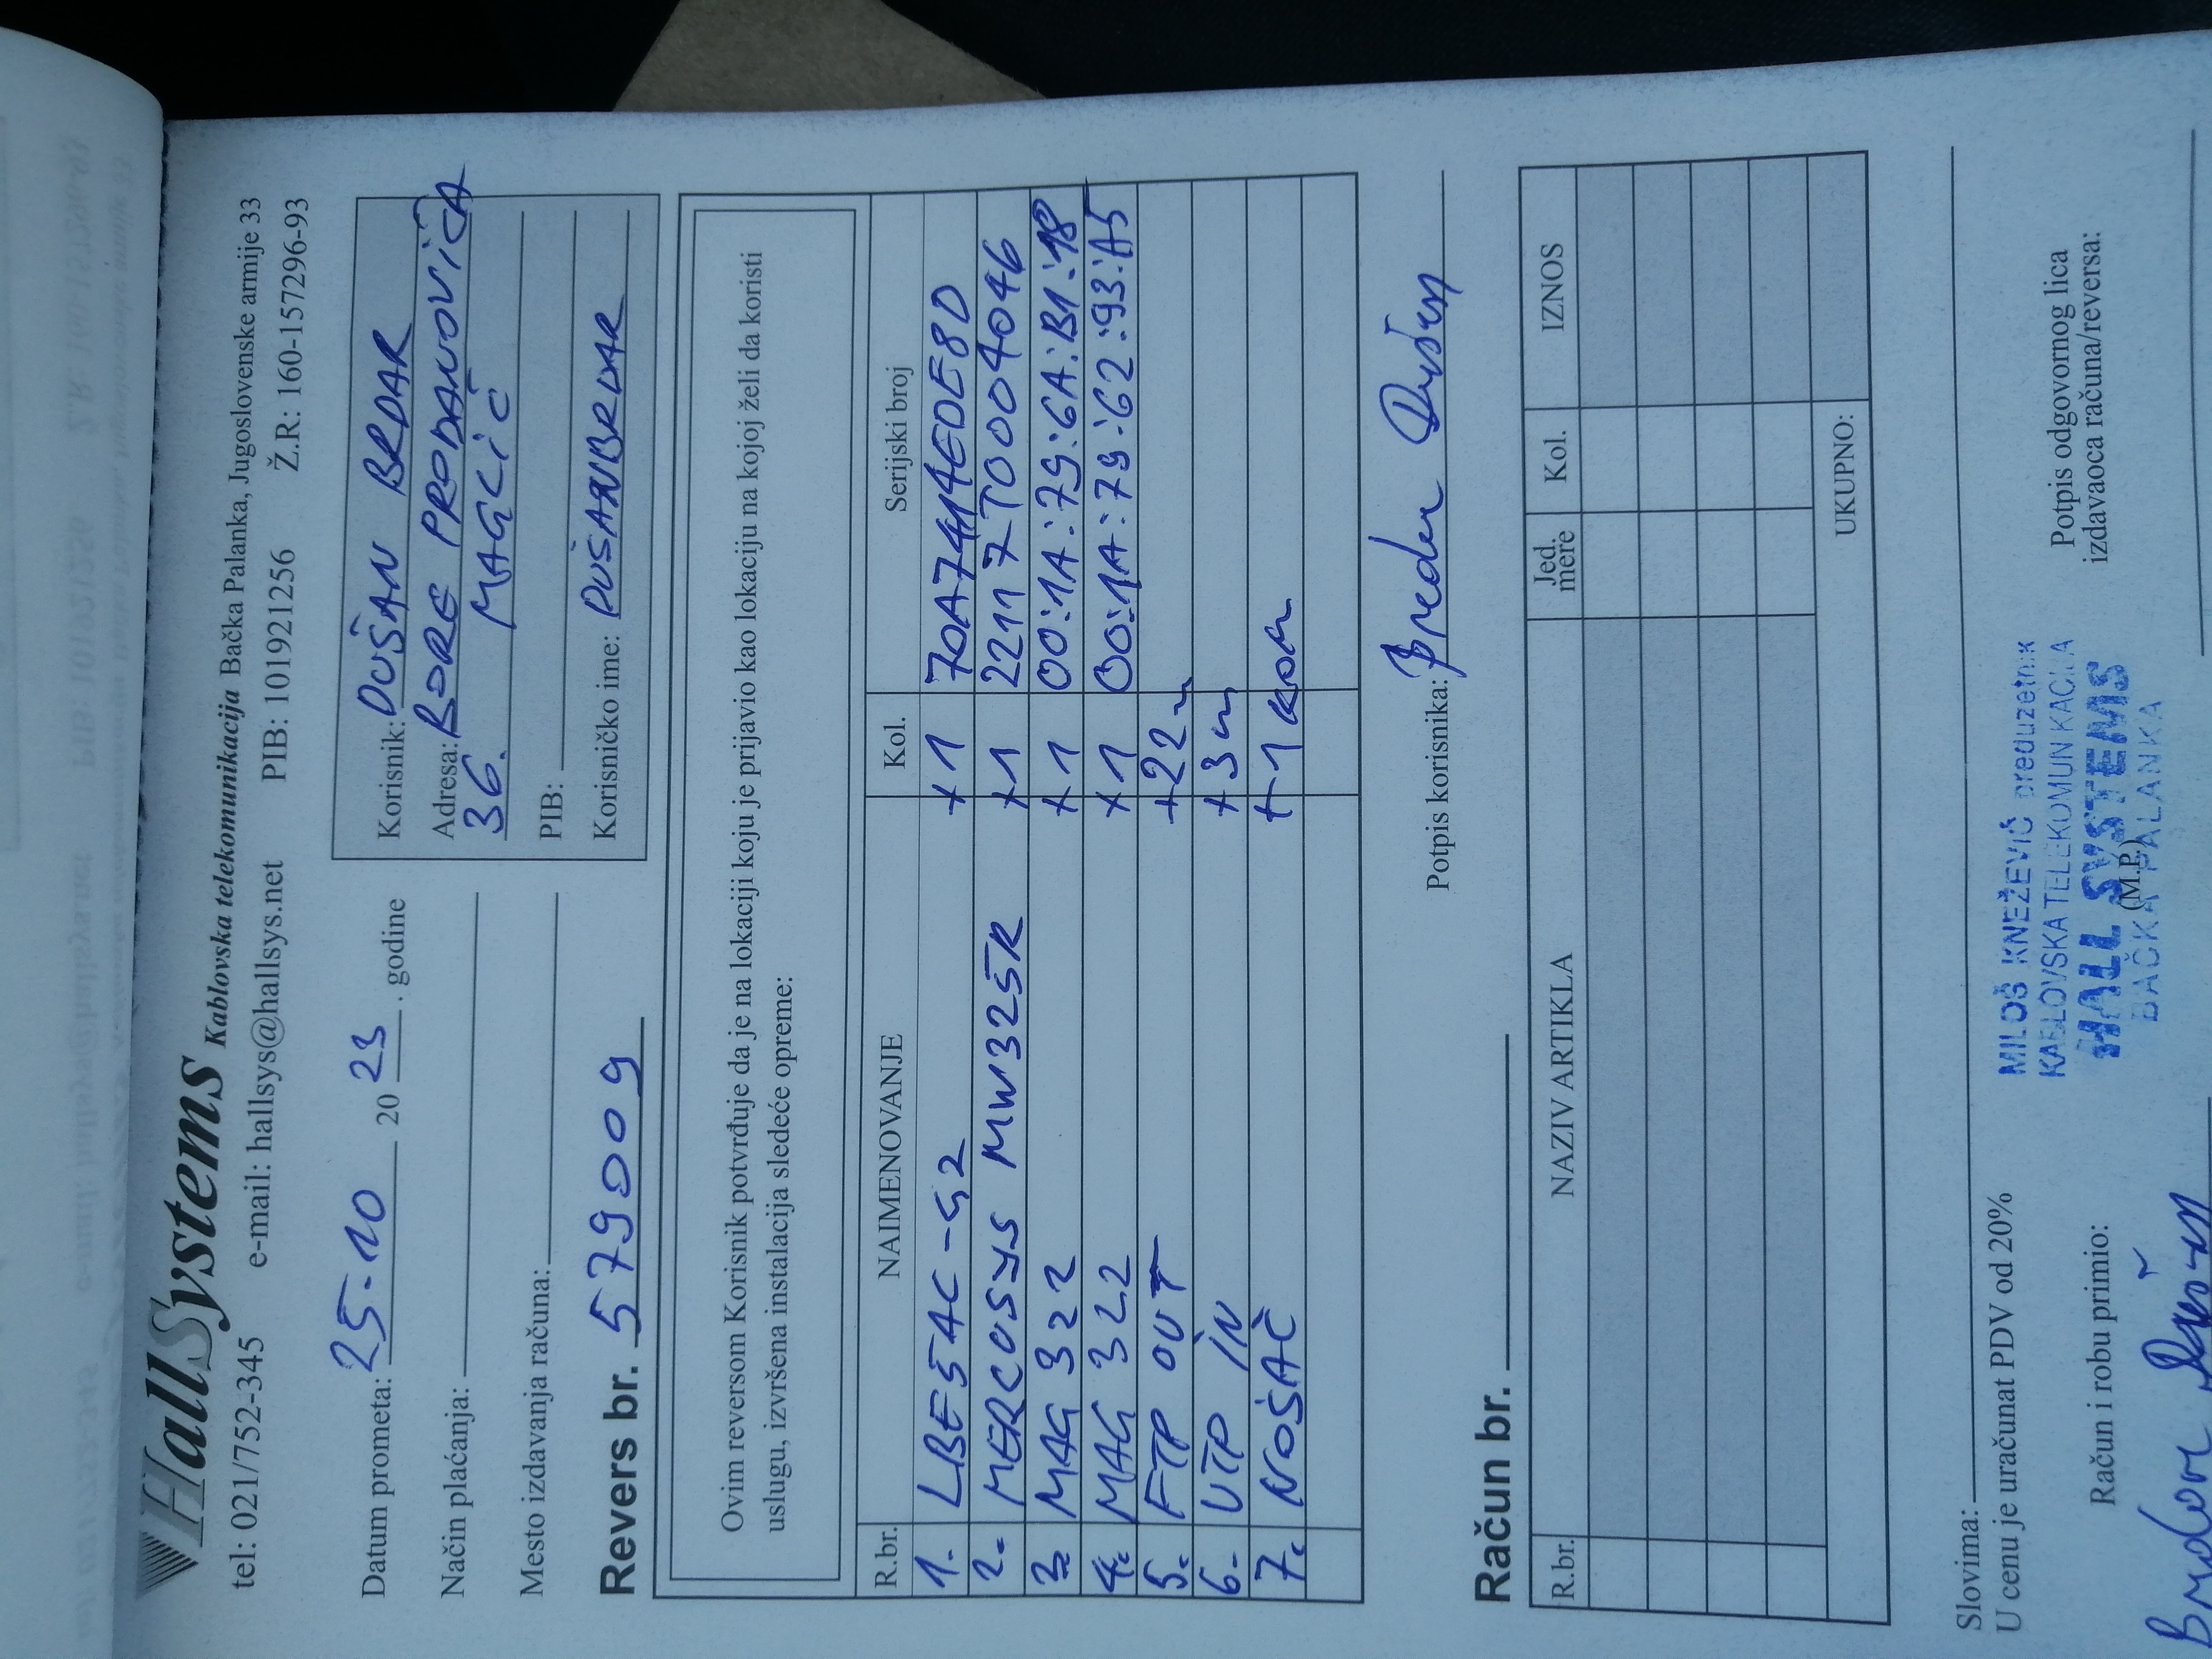 HallSystems Kablovska telekomunikacija Bačka Palanka, Jugoslovenske armije 33
tel: 021/752-345 e-mail: hallsys@hallsys.net PIB: 101921256 Ž.R.: 160-157296-93
Datum prometa: 25.10 20 23 . godine
Način plaćanja:
Mesto izdavanja računa:
Korisnik: DUŠAN BRDAR
Adresa: BORE PRODANOVIĆA
36. MAGLIĆ
PIB:
Korisničko ime: DUŠANBRDAR
Revers br. 579009
Ovim reversom Korisnik potvrđuje da je na lokaciji koju je prijavio kao lokaciju na kojoj želi da koristi
uslugu, izvršena instalacija sledeće opreme:
R.br. NAIMENOVANJE Kol. Serijski broj
1. LBE5AC-G2 +1 70A7414EDE8D
2. MERCUSYS MW325R +1 22117T0004046
3. MAG 322 +1 00:1A:79:6A:B1:18
4. MAG 322 +1 00:1A:79:62:93:A5
5. FTP OUT +22m
6. UTP IN +3m
7. NOSAČ +1 kom
Potpis korisnika: Brdar Dušan
Račun br.
R.br. NAZIV ARTIKLA Jed. mere Kol. IZNOS
UKUPNO:
Slovima:
U cenu je uračunat PDV od 20%
MILOŠ KNEŽEVIĆ preduzetnik
KABLOVSKA TELEKOMUNIKACIJA
HALL SYSTEMS
BAČKA PALANKA
(M.P.)
Račun i robu primio:
Potpis odgovornog lica
izdavaoca računa/reversa:
Brdar Dušan